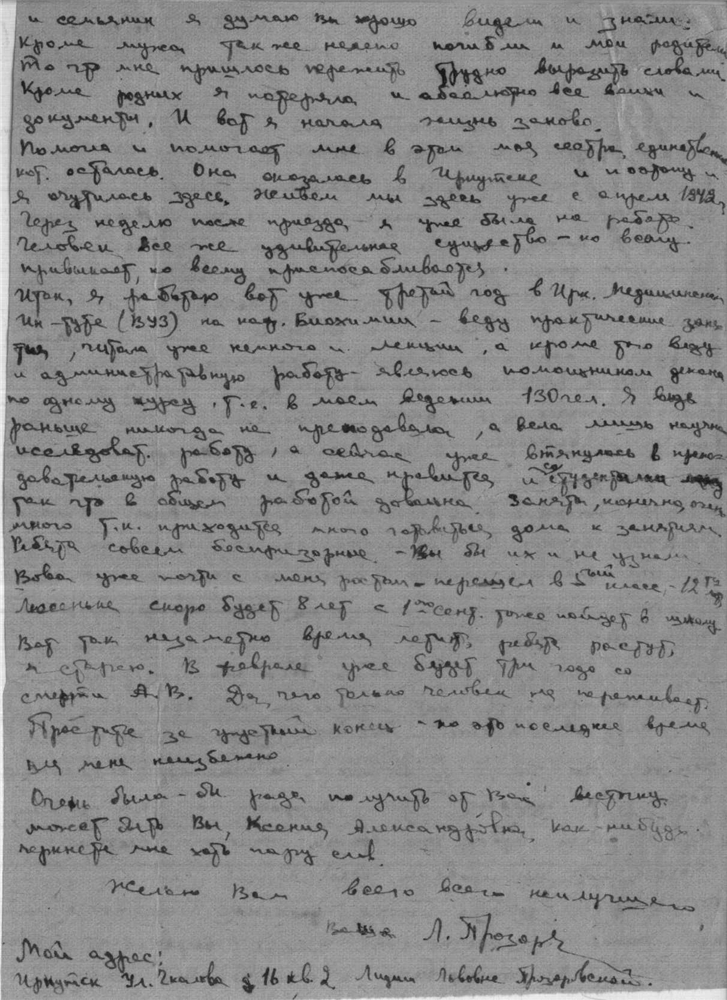 и семьянин я думаю Вы хорошо видели и знали.
Кроме мужа так же нелепо погибли и мои родители
То что мне пришлось пережить трудно выразить словами.
Кроме родных я потеряла и абсолютно все вещи и
документы. И вот я начала жизнь заново.
Помогла и помогает мне в этом моя сестра, единственно
кот. осталась. Она оказалась в Иркутске и поэтому и
я очутилась здесь. Живем мы здесь уже с апреля 1942,
Через неделю после приезда я уже была на работе.
Человек все же удивительное существо – ко всему
привыкает, ко всему приспосабливается.
Итак, я работаю вот уже третий год в Ирк. Медицинском
Ин-туте (ВУЗ) на каф. Биохимии – веду практические заня-
тия, читала уже немного и лекции, а кроме того веду
и административную работу – являюсь помощником декана
по одному курсу, т.е. в моем ведении 130 чел. Я ведь
раньше никогда не преподавала, а вела лишь научно
исследоват. работу, а сейчас уже втянулась в препо-
давательскую работу и даже нравится и со студентами
так что в общем работой довольна. Занята, конечно, очень
много т.к. приходится много готовиться дома к занятиям.
Ребята совсем беспризорные. – Вы бы их и не узнали
Вова уже почти с меня ростом – перешел в 5тый класс, – 12
Люсеньке скоро будет 8 лет с 1го сент. тоже пойдет в школу
Вот так незаметно время летит, ребята растут,
я старею. В феврале уже будет три года со
смерти А.В. Да, чего только человек не переживает.
Простите за грустный конец – но это последнее время
для меня неизбежно.
Очень была – бы рада получить от Вас весточку
может быть Вы, Ксения Александровна, как-нибудь
черкнете мне хоть пару слов.
Желаю Вам всего всего наилучшего
Ваша Л. Прозоро
Мой адрес:
Иркутск Ул. Чкалова д 16 кв. 2 Лидии Львовне Прозоровской.